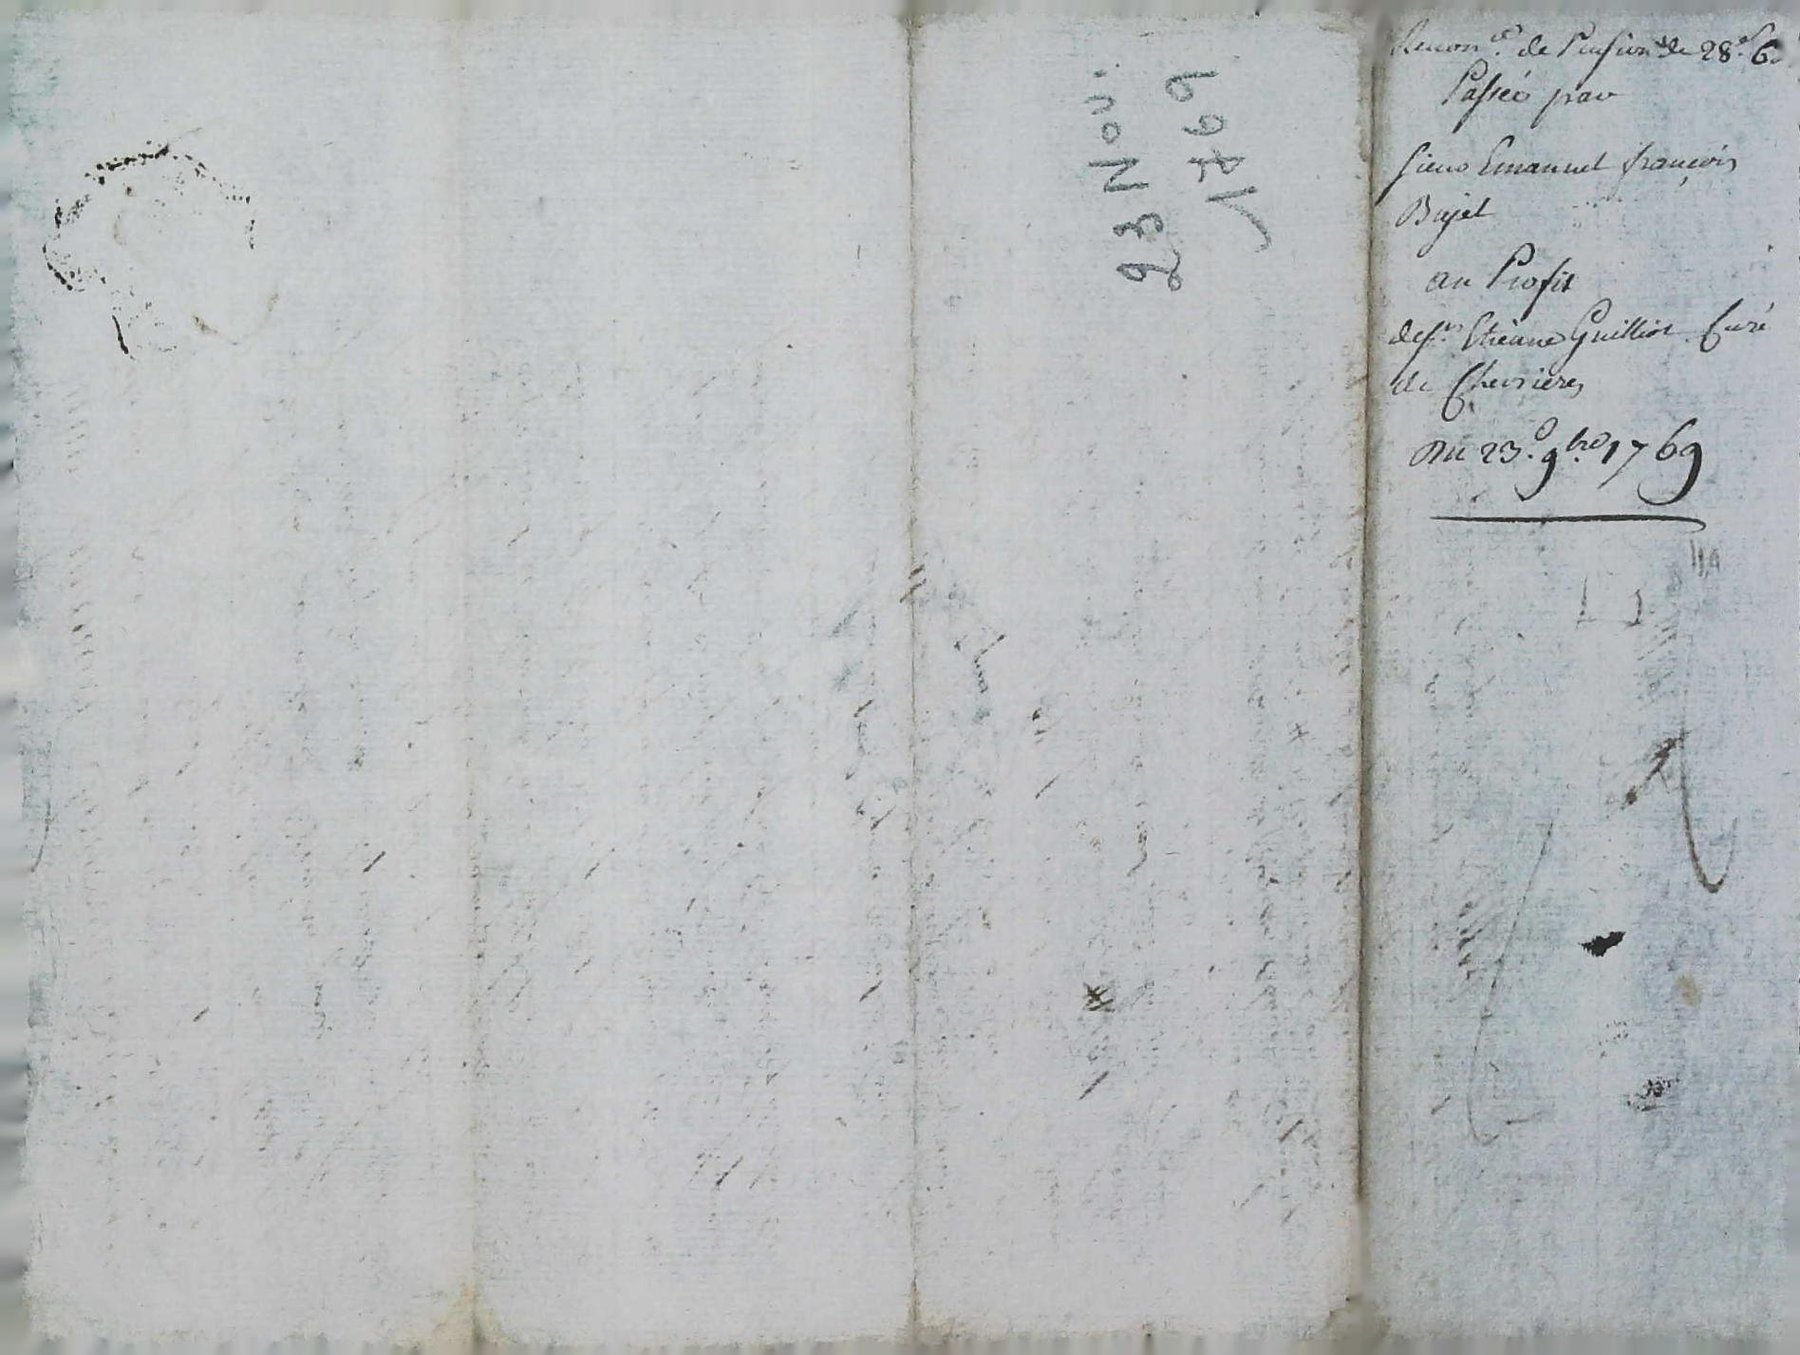 23 Nov.
1769
Reconce. de Pension de 28# 6s
Passée par
sieur Emanuel françois
Bujet
au Profit
de sr. Etienne Guilliot Curé
de Chevrieres
Du 23e. 9bre 1769